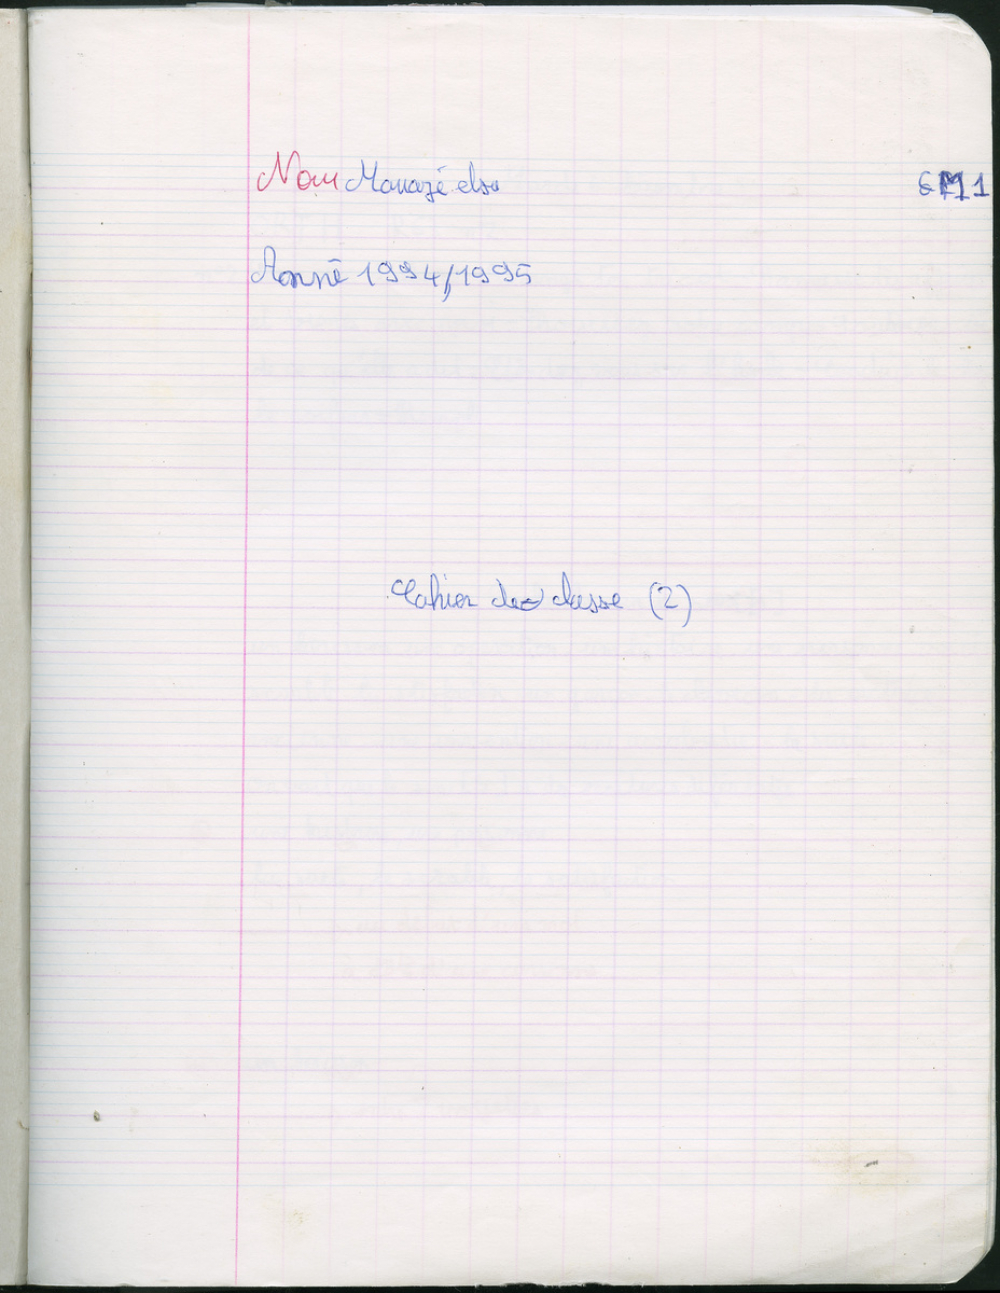 Nom Mauazé elsa
6M1
Anné 1994/1995
Cahier de classe (2)